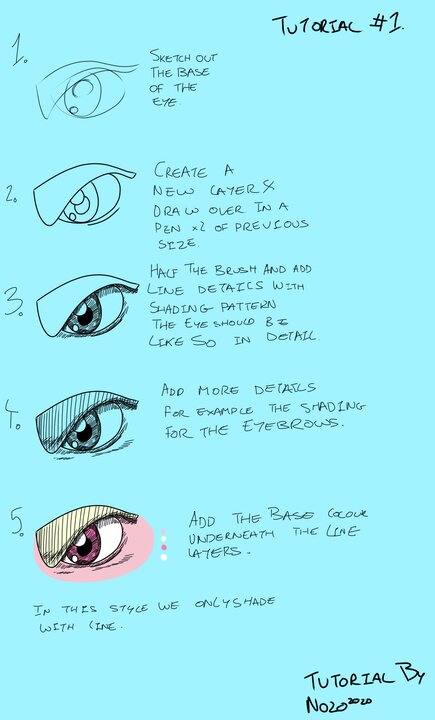 TUTORIAL #1.
1.
SKETCH OUT
THE BASE
OF THE
EYE.
2.
CREATE A
NEW LAYER &
DRAW OVER IN A
PEN x2 OF PREVIOUS
SIZE.
3.
HALF THE BRUSH AND ADD
LINE DETAILS WITH
SHADING PATTERN
THE EYE SHOULD BE
LIKE SO IN DETAIL.
4.
ADD MORE DETAILS
FOR EXAMPLE THE SHADING
FOR THE EYEBROWS.
5.
ADD THE BASE COLOUR
UNDERNEATH THE LINE
LAYERS.
IN THIS STYLE WE ONLY SHADE
WITH LINE.
TUTORIAL BY
NOZO2020